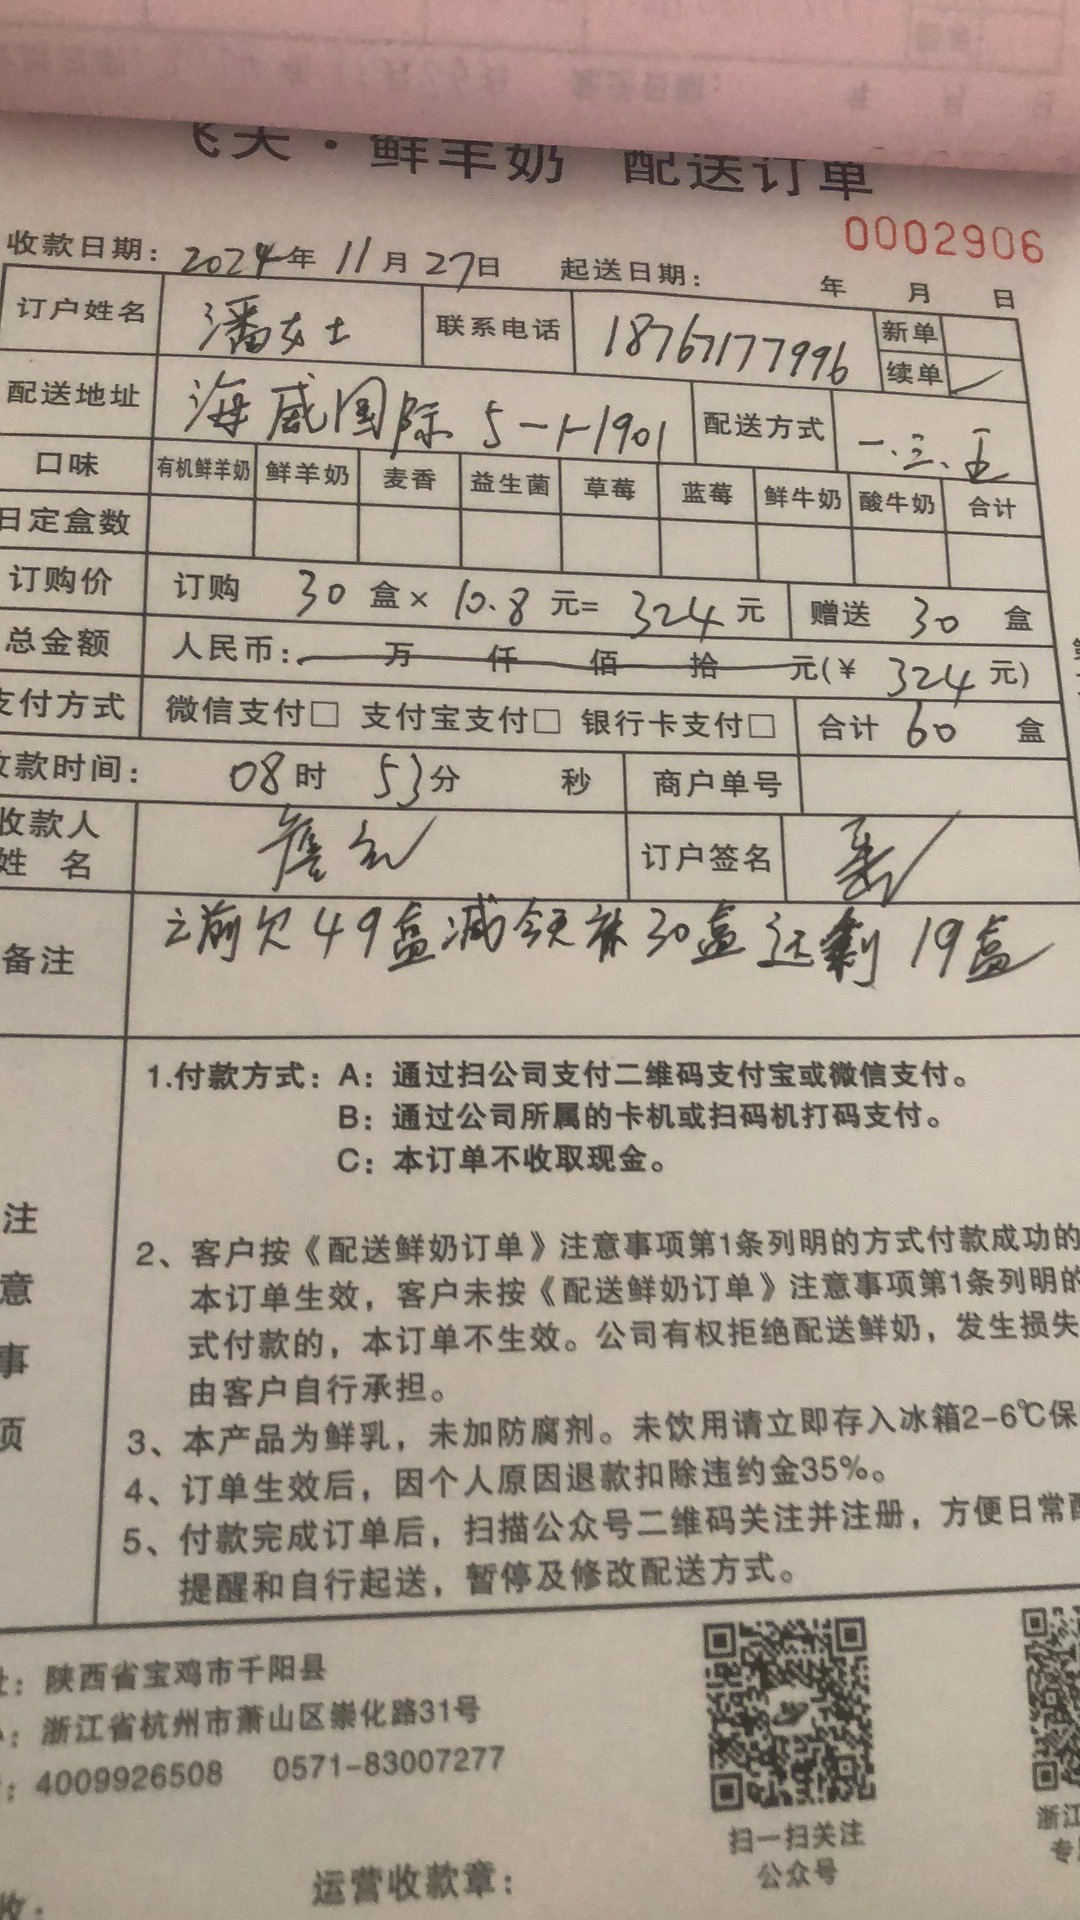 飞天·鲜羊奶 配送订单
0002906
收款日期: 2024年 11月 27日 起送日期: 年 月 日
订户姓名 潘女士 联系电话 18767177996 新单
续单 ✓
配送地址 海威国际 5-1-1901 配送方式 一.三.五
口味 有机鲜羊奶 鲜羊奶 麦香 益生菌 草莓 蓝莓 鲜牛奶 酸牛奶 合计
日定盒数
订购价 订购 30 盒× 10.8 元= 324 元 赠送 30 盒
总金额 人民币: 万 仟 佰 拾 元(¥ 324 元)
支付方式 微信支付□ 支付宝支付□ 银行卡支付□ 合计 60 盒
收款时间: 08时 53分 秒 商户单号
收款人
姓 名
订户签名
备注 之前欠49盒减今天补30盒还剩19盒
注意事项
1.付款方式: A: 通过扫公司支付二维码支付宝或微信支付。
B: 通过公司所属的卡机或扫码机打码支付。
C: 本订单不收取现金。
2、客户按《配送鲜奶订单》注意事项第1条列明的方式付款成功的
本订单生效，客户未按《配送鲜奶订单》注意事项第1条列明的
式付款的，本订单不生效。公司有权拒绝配送鲜奶，发生损失
由客户自行承担。
3、本产品为鲜乳，未加防腐剂。未饮用请立即存入冰箱2-6℃保
4、订单生效后，因个人原因退款扣除违约金35%。
5、付款完成订单后，扫描公众号二维码关注并注册，方便日常配
提醒和自行起送，暂停及修改配送方式。
址: 陕西省宝鸡市千阳县
: 浙江省杭州市萧山区崇化路31号
: 4009926508 0571-83007277
扫一扫关注
公众号
浙江
专
运营收款章: